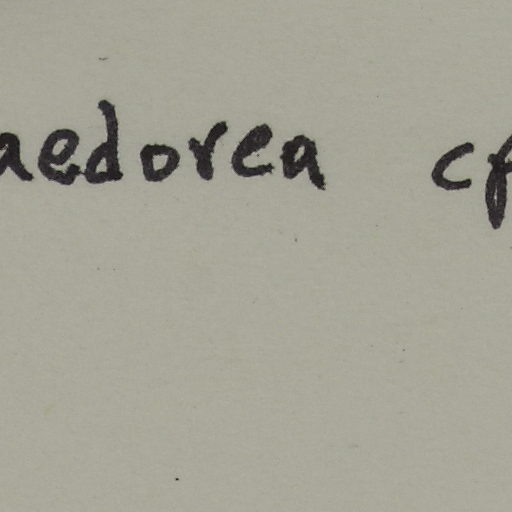 aedorea cf